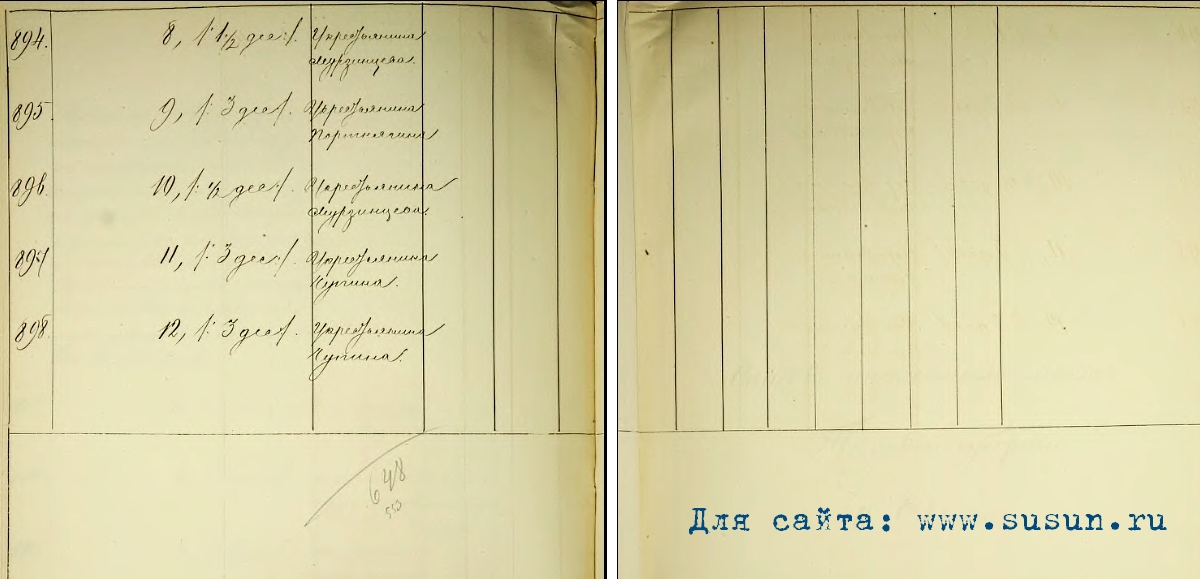 894. 8, /: 1 1/2 дес:/. Крестьянина
Мурзинцева.
895 9, /: 3 дес:/. Крестьянина
Портнягина
896. 10, /: 1/2 дес:/. Крестьянина
Мурзинцева.
897 11, /: 3 дес:/. Крестьянина
Чупина.
898. 12, /: 3 дес:/. Крестьянина
Чупина.
648
553
Для сайта: www.susun.ru